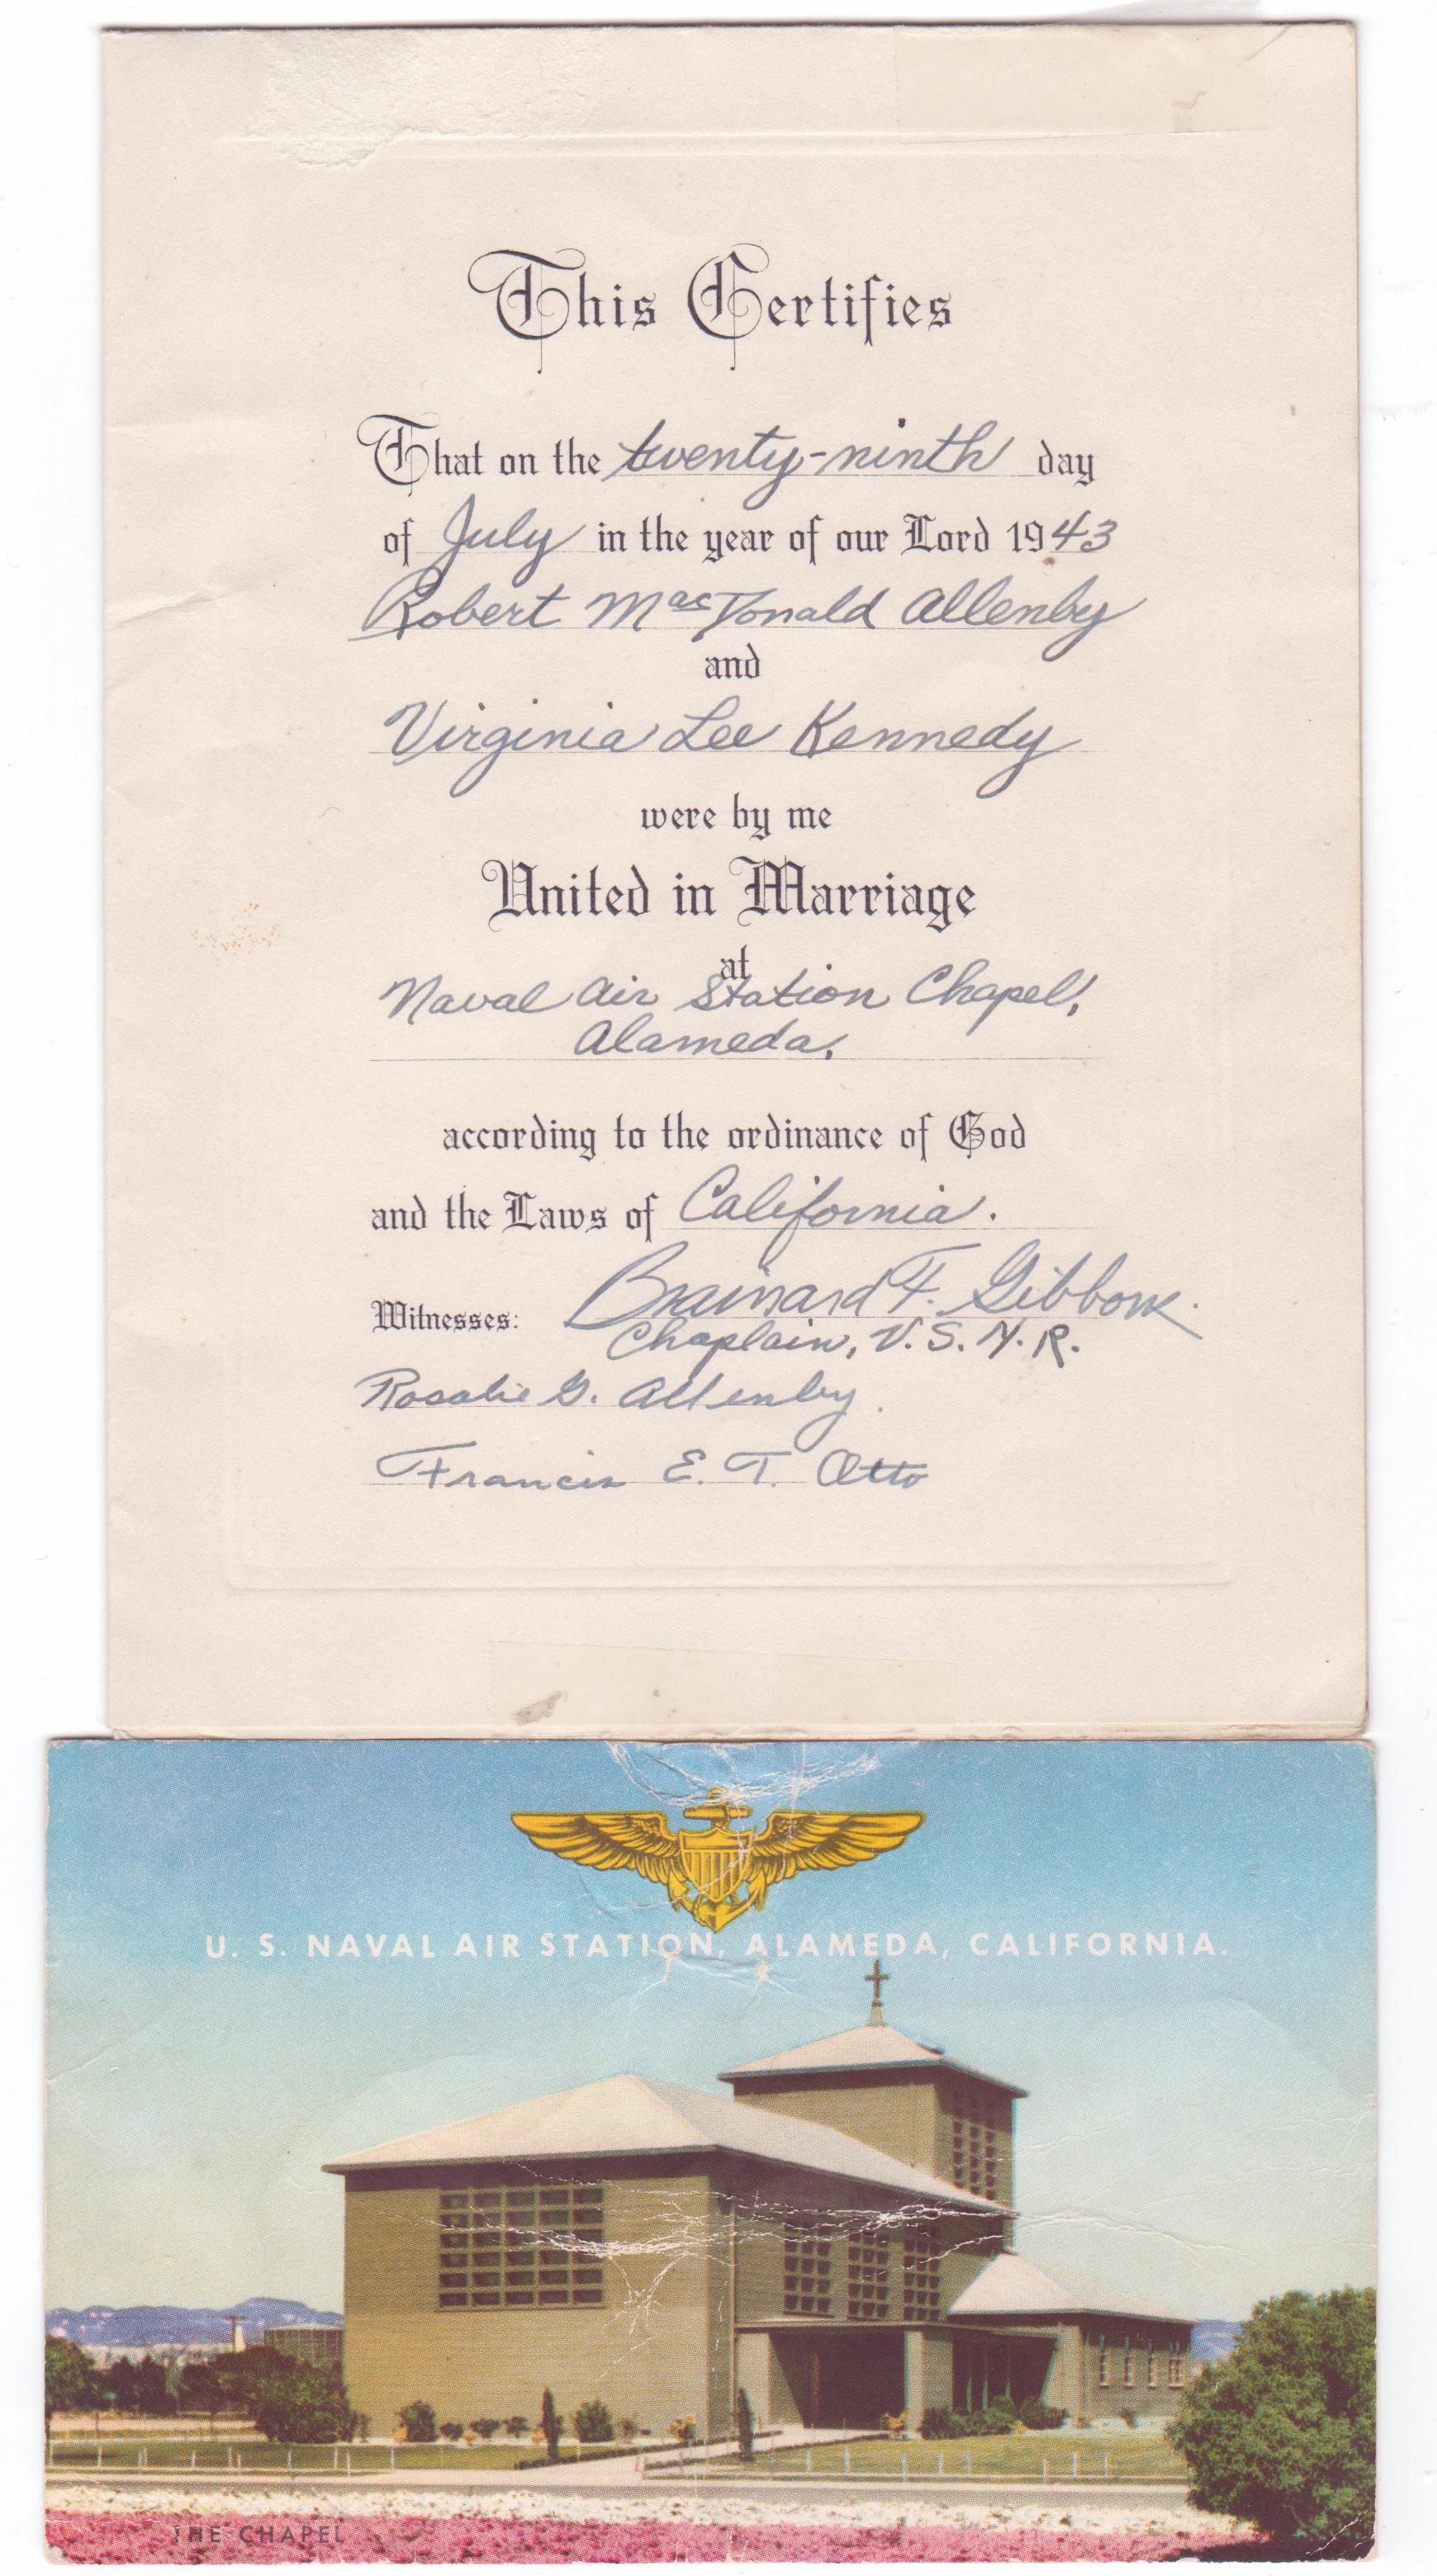 This Certifies
That on the twenty-ninth day
of July in the year of our Lord 1943
Robert MacDonald Allenby
and
Virginia Lee Kennedy
were by me
United in Marriage
at
Naval Air Station Chapel,
Alameda.
according to the ordinance of God
and the Laws of California.
Brainard F. Gibbons.
Witnesses:
Chaplain, U.S.N.R.
Rosalie G. Allenby.
Francis E. T. Otto
U. S. NAVAL AIR STATION, ALAMEDA, CALIFORNIA.
THE CHAPEL